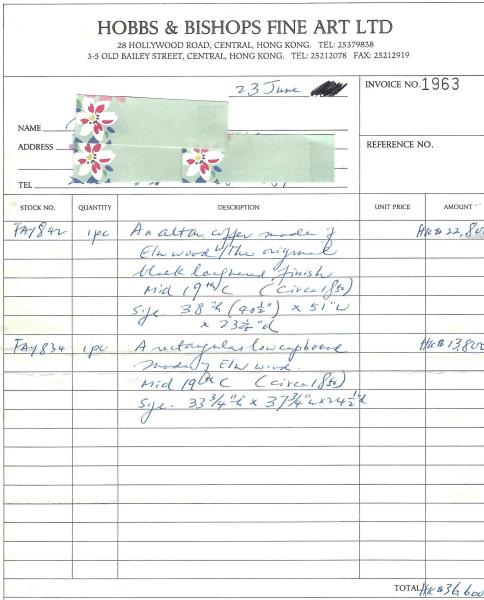 HOBBS & BISHOPS FINE ART LTD
28 HOLLYWOOD ROAD, CENTRAL, HONG KONG. TEL: 25379838
3-5 OLD BAILEY STREET, CENTRAL, HONG KONG. TEL: 25212078 FAX: 25212919
23 June
INVOICE NO. 1963
NAME
ADDRESS
REFERENCE NO.
TEL
STOCK NO. QUANTITY DESCRIPTION UNIT PRICE AMOUNT
FAY842 1pc An altar coffer made of HK$22,800
Elm wood w/ the original
black lacquered finish
Mid 19th C (circa 1850)
Size 38"h (40½") x 51"w
x 23½"d
FAY834 1pc A rectangular low cupboard HK$13,800
made of Elm wood.
Mid 19th C (circa 1850)
Size - 33¾"h x 37¾"w x 24½"d
TOTAL HK$36,600